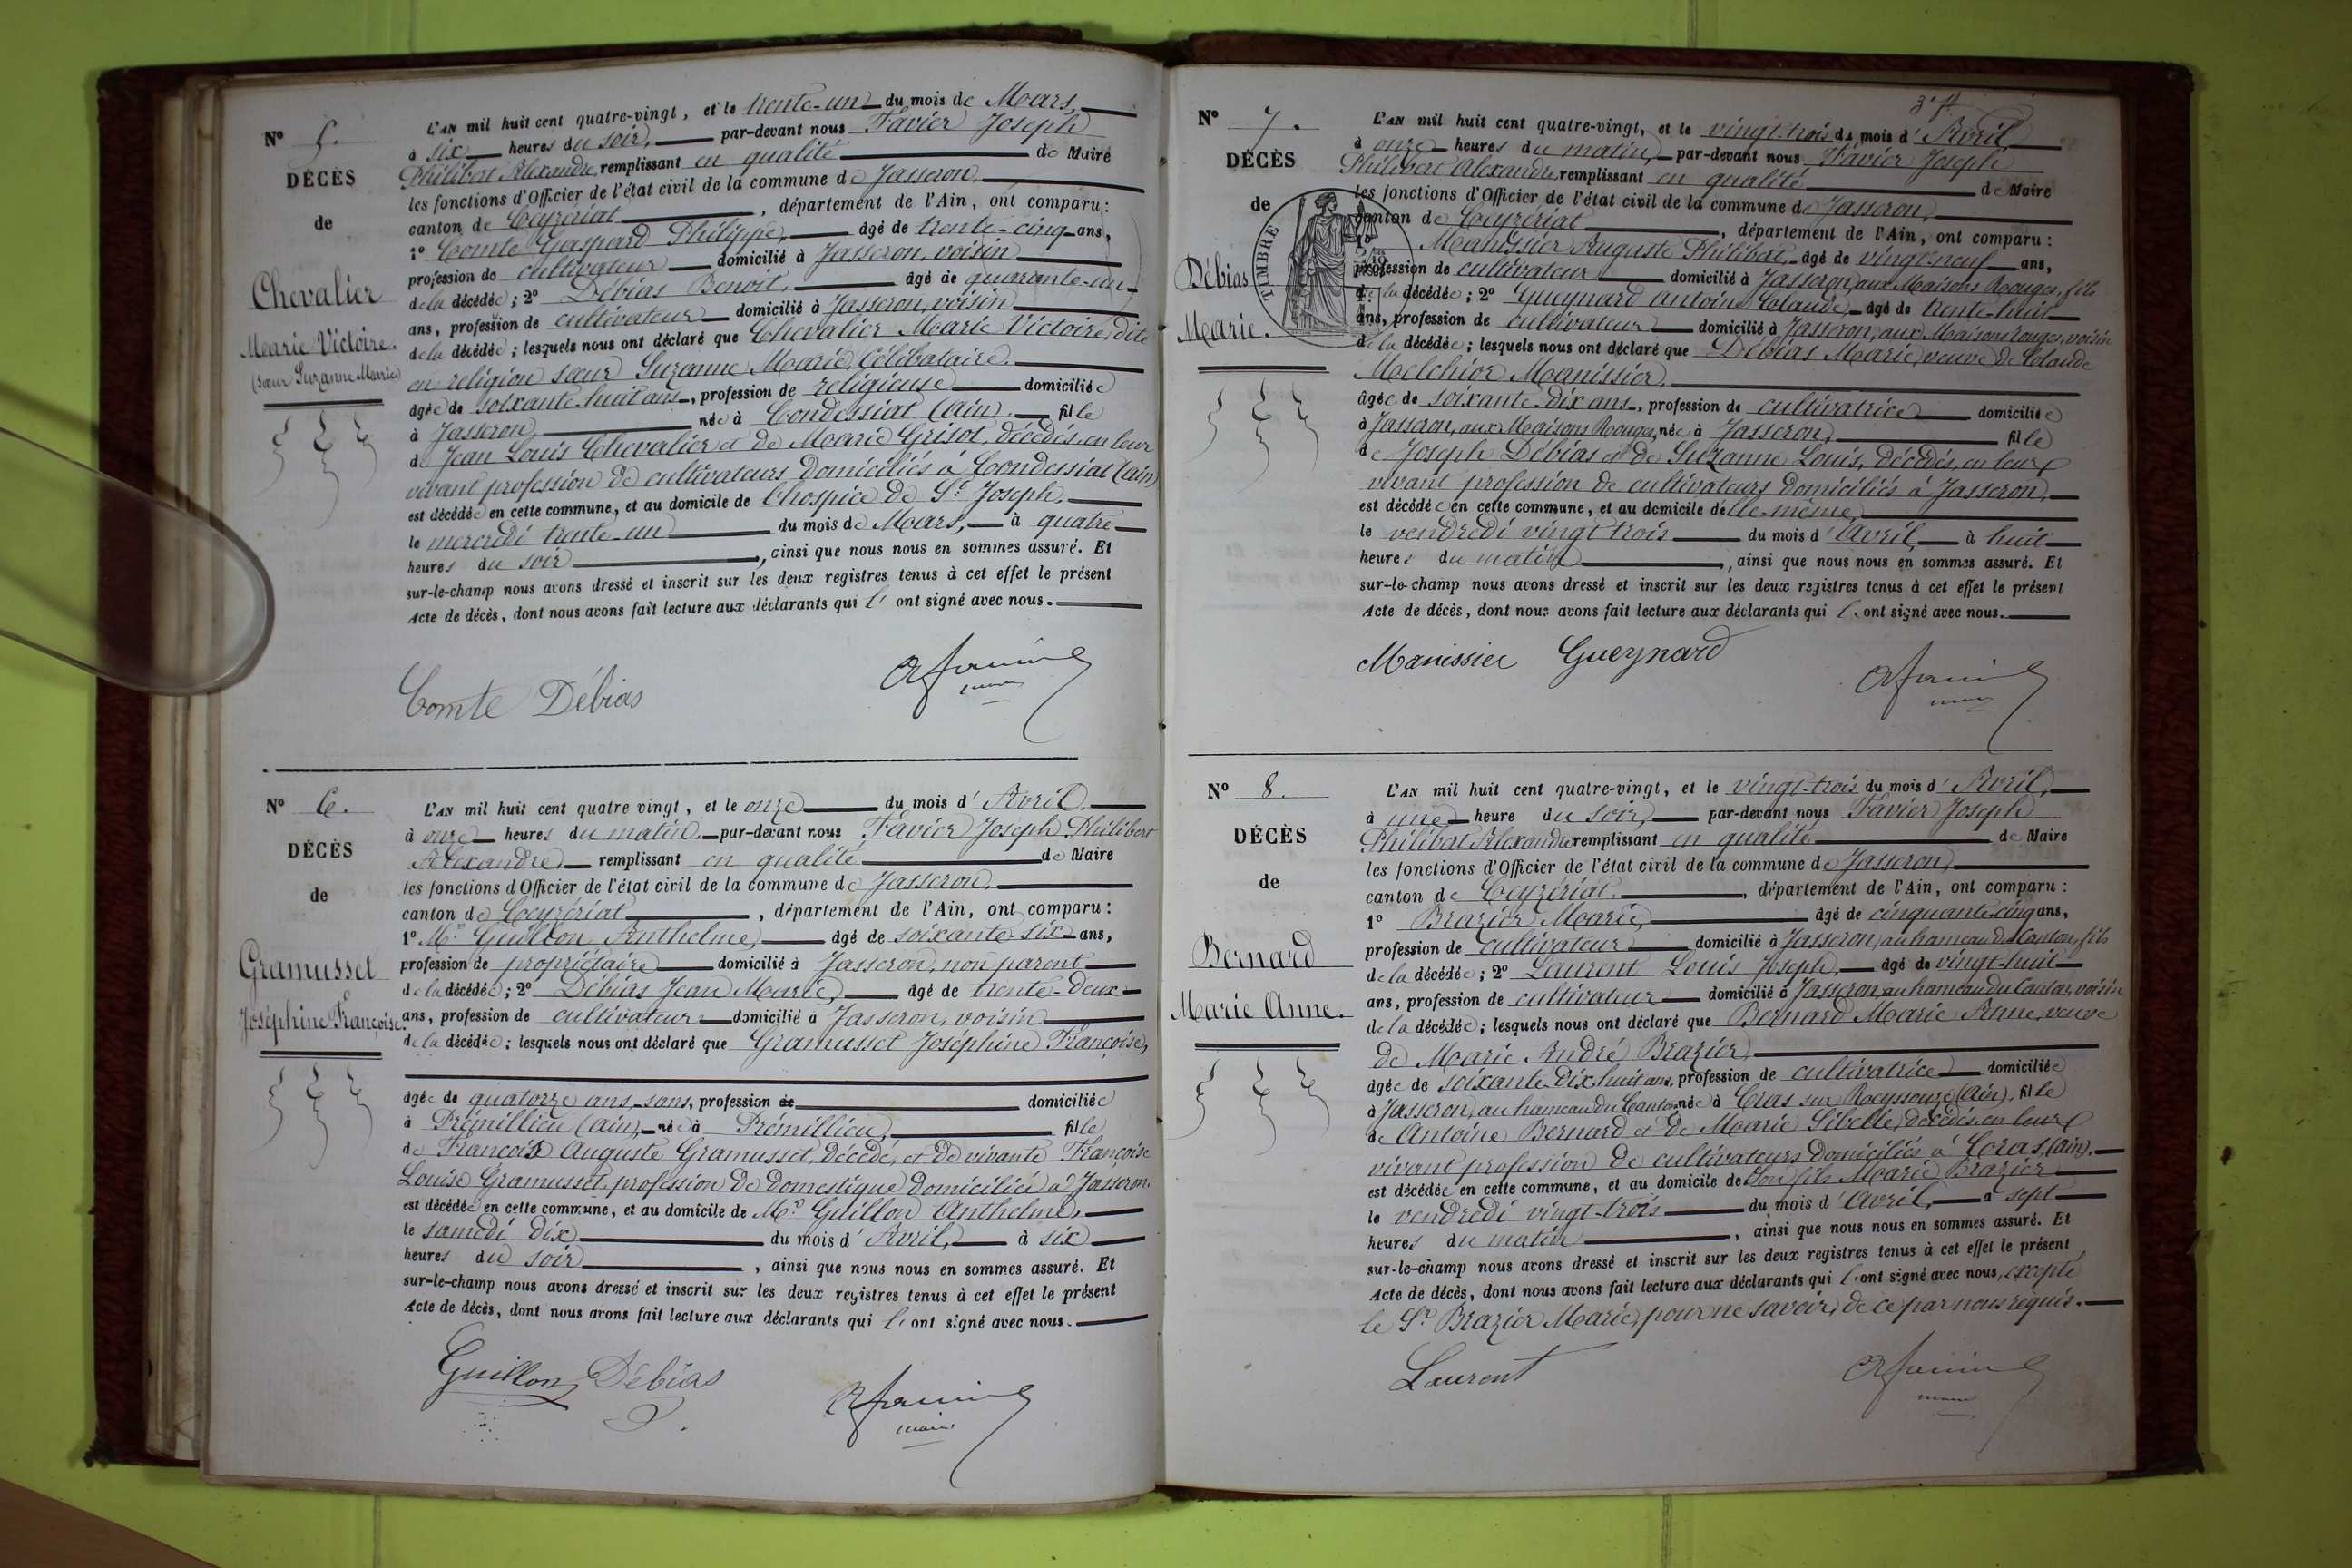 N° 5.
DÉCÈS
de
Chevalier
Marie Victoire.
(sœur Suzanne Marie)
L'AN mil huit cent quatre-vingt, et le trente-un du mois de Mars,
à six heures du soir, par-devant nous Favier Joseph
Philibert Alexandre, remplissant en qualité de Maire
les fonctions d'Officier de l'état civil de la commune de Jasseron,
canton de Ceyzériat, département de l'Ain, ont comparu :
1° Comte Gaspard Philippe, âgé de trente-cinq ans,
profession de cultivateur domicilié à Jasseron, voisin
de la décédée ; 2° Débias Benoit, âgé de quarante-un
ans, profession de cultivateur domicilié à Jasseron, voisin
de la décédée ; lesquels nous ont déclaré que Chevalier Marie Victoire, dite
en religion sœur Suzanne Marie, Célibataire.
âgée de soixante-huit ans, profession de religieuse domiciliée
à Jasseron, née à Condessiat (ain). fille
de Jean Louis Chevalier et de Marie Grisot, décédés, en leur
vivant profession de cultivateurs domiciliés à Condessiat (ain)
est décédée en cette commune, et au domicile de l'hospice de St Joseph,
le mercredi trente-un du mois de Mars, à quatre
heures du soir, ainsi que nous nous en sommes assuré. Et
sur-le-champ nous avons dressé et inscrit sur les deux registres tenus à cet effet le présent
Acte de décès, dont nous avons fait lecture aux déclarants qui l'ont signé avec nous.
Comte Débias
maire
N° 6.
DÉCÈS
de
Gramusset
Joséphine Françoise.
L'AN mil huit cent quatre vingt, et le onze du mois d'Avril,
à onze heures du matin, par-devant nous Favier Joseph Philibert
Alexandre, remplissant en qualité de Maire
les fonctions d'Officier de l'état civil de la commune de Jasseron,
canton de Ceyzériat, département de l'Ain, ont comparu :
1° Mr Guillon Anthelme, âgé de soixante-six ans,
profession de propriétaire domicilié à Jasseron, non parent
de la décédée ; 2° Débias Jean Marie, âgé de trente-deux
ans, profession de cultivateur domicilié à Jasseron, voisin
de la décédée ; lesquels nous ont déclaré que Gramusset Joséphine Françoise,
âgée de quatorze ans, sans, profession de domiciliée
à Prémillieu (ain), née à Prémillieu, fille
de François Auguste Gramusset, décédé, et de vivante Françoise
Louise Gramusset, profession de domestique domiciliée à Jasseron.
est décédée en cette commune, et au domicile de Mr Guillon Anthelme,
le samedi dix du mois d'Avril, à six
heures du soir, ainsi que nous nous en sommes assuré. Et
sur-le-champ nous avons dressé et inscrit sur les deux registres tenus à cet effet le présent
Acte de décès, dont nous avons fait lecture aux déclarants qui l'ont signé avec nous.
Guillon Débias
maire
3e f
N° 7.
DÉCÈS
de
TIMBRE
Débias
Marie.
L'AN mil huit cent quatre-vingt, et le vingt-trois du mois d'Avril,
à onze heures du matin, par-devant nous Favier Joseph
Philibert Alexandre, remplissant en qualité de Maire
les fonctions d'Officier de l'état civil de la commune de Jasseron,
canton de Ceyzériat, département de l'Ain, ont comparu :
1° Manissier Auguste Philibert, âgé de vingt-neuf ans,
profession de cultivateur domicilié à Jasseron, aux Maisons Rouges, fils
de la décédée ; 2° Gueynard Antoine Claude, âgé de trente-huit
ans, profession de cultivateur domicilié à Jasseron, aux Maisons rouges, voisin
de la décédée ; lesquels nous ont déclaré que Débias Marie, veuve de Claude
Melchior Manissier,
âgée de soixante-dix ans, profession de cultivatrice domiciliée
à Jasseron, aux Maisons Rouges, née à Jasseron, fille
de Joseph Débias et de Suzanne Louis, décédés, en leur
vivant profession de cultivateurs domiciliés à Jasseron,
est décédée en cette commune, et au domicile d'elle-même,
le vendredi vingt trois du mois d'Avril, à huit
heures du matin, ainsi que nous nous en sommes assuré. Et
sur-le-champ nous avons dressé et inscrit sur les deux registres tenus à cet effet le présent
Acte de décès, dont nous avons fait lecture aux déclarants qui l'ont signé avec nous.
Manissier Gueynard
maire
N° 8.
DÉCÈS
de
Bernard
Marie Anne.
L'AN mil huit cent quatre-vingt, et le vingt-trois du mois d'Avril,
à une heure du soir, par-devant nous Favier Joseph
Philibert Alexandre remplissant en qualité de Maire
les fonctions d'Officier de l'état civil de la commune de Jasseron,
canton de Ceyzériat, département de l'Ain, ont comparu :
1° Brazier Marie, âgé de cinquante-cinq ans,
profession de cultivateur domicilié à Jasseron, au hameau du Canton, fils
de la décédée ; 2° Laurent Louis Joseph, âgé de vingt-huit
ans, profession de cultivateur domicilié à Jasseron, au hameau du Canton, voisin
de la décédée ; lesquels nous ont déclaré que Bernard Marie Anne, veuve
de Marie André Brazier,
âgée de soixante-dix-huit ans, profession de cultivatrice domiciliée
à Jasseron, au hameau du Canton, née à Cras sur Reyssouze (Ain), fille
de Antoine Bernard et de Marie Sibelle, décédés, en leur
vivant profession de cultivateurs domiciliés à Cras, (Ain).
est décédée en cette commune, et au domicile de son fils Marie Brazier
le vendredi vingt-trois du mois d'Avril, à sept
heures du matin, ainsi que nous nous en sommes assuré. Et
sur-le-champ nous avons dressé et inscrit sur les deux registres tenus à cet effet le présent
Acte de décès, dont nous avons fait lecture aux déclarants qui l'ont signé avec nous, excepté
le Sr Brazier Marie, pour ne savoir, de ce par nous réquis.
Laurent
maire